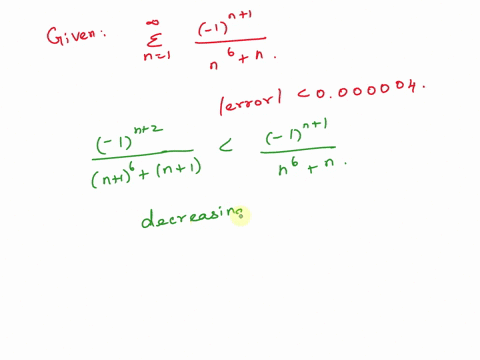 Given: ∞ Σ n=1 (-1)^{n+1} / n^6 + n.
|error| < 0.000004.
(-1)^{n+2} / (n+1)^6 + (n+1) < (-1)^{n+1} / n^6 + n.
decreasing